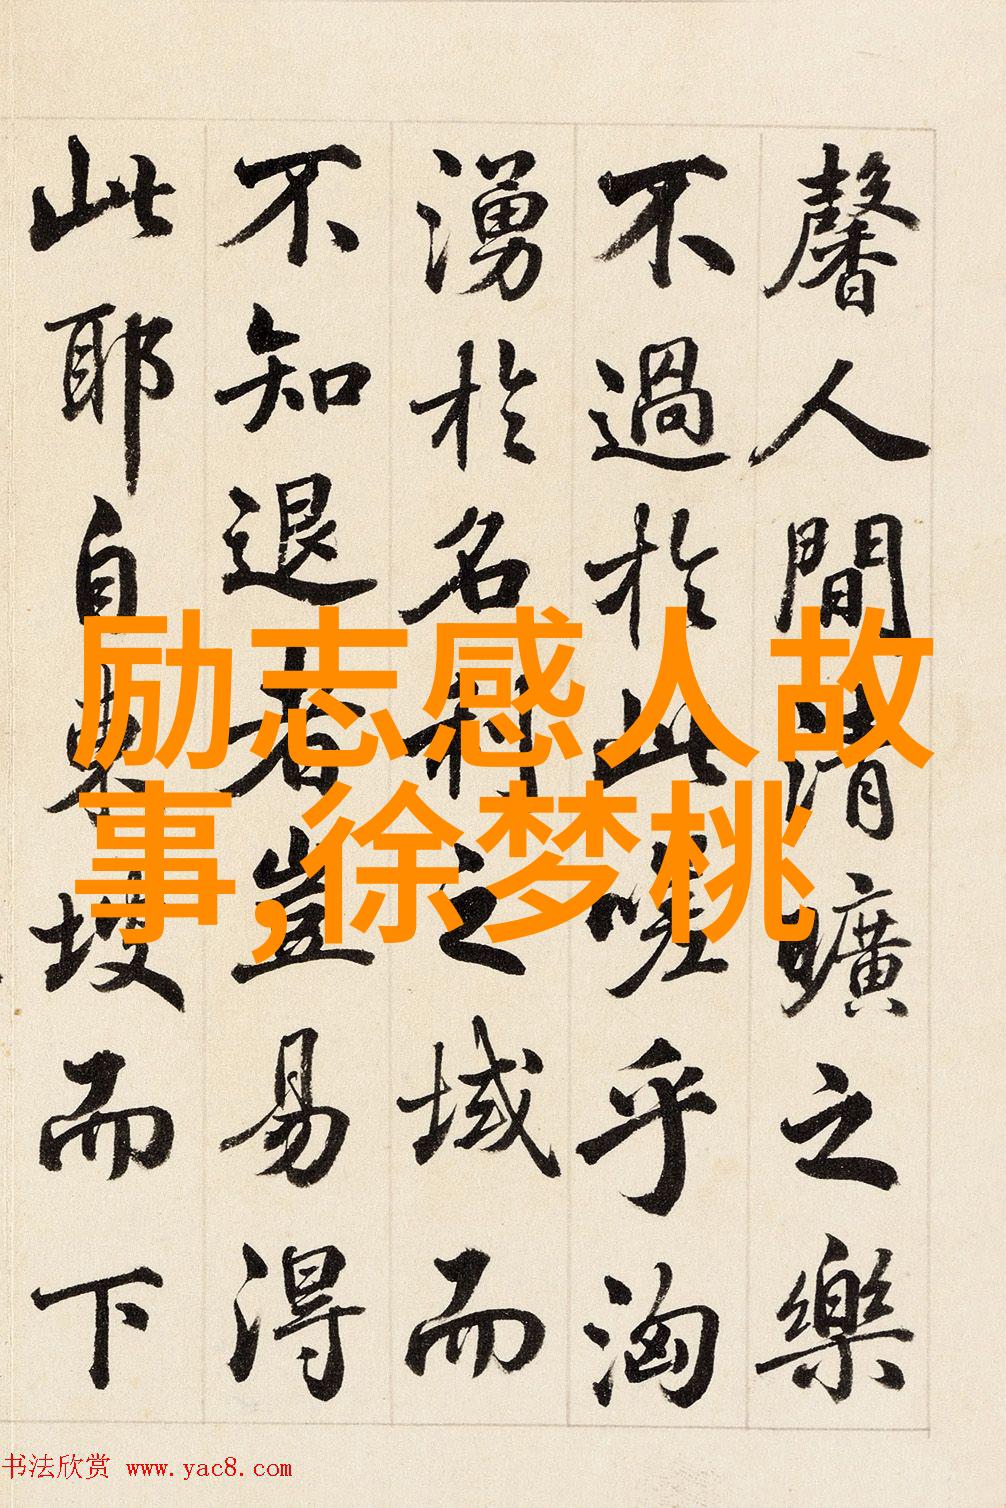 馨人間清曠之樂
不過於此嗟乎洶
湧於名利之域而
不知退者豈易得
此耶自東坡而下
励志感人故
事,徐梦桃
书法欣赏 www.yac8.com